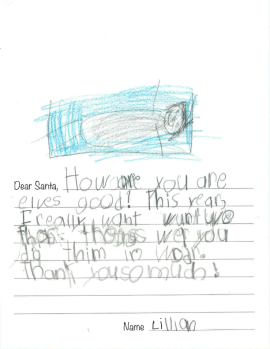 Dear Santa, How are you are
elves good! This year,
I really want
thos wer you
do thim in
Thank you so much!
Name Lillian